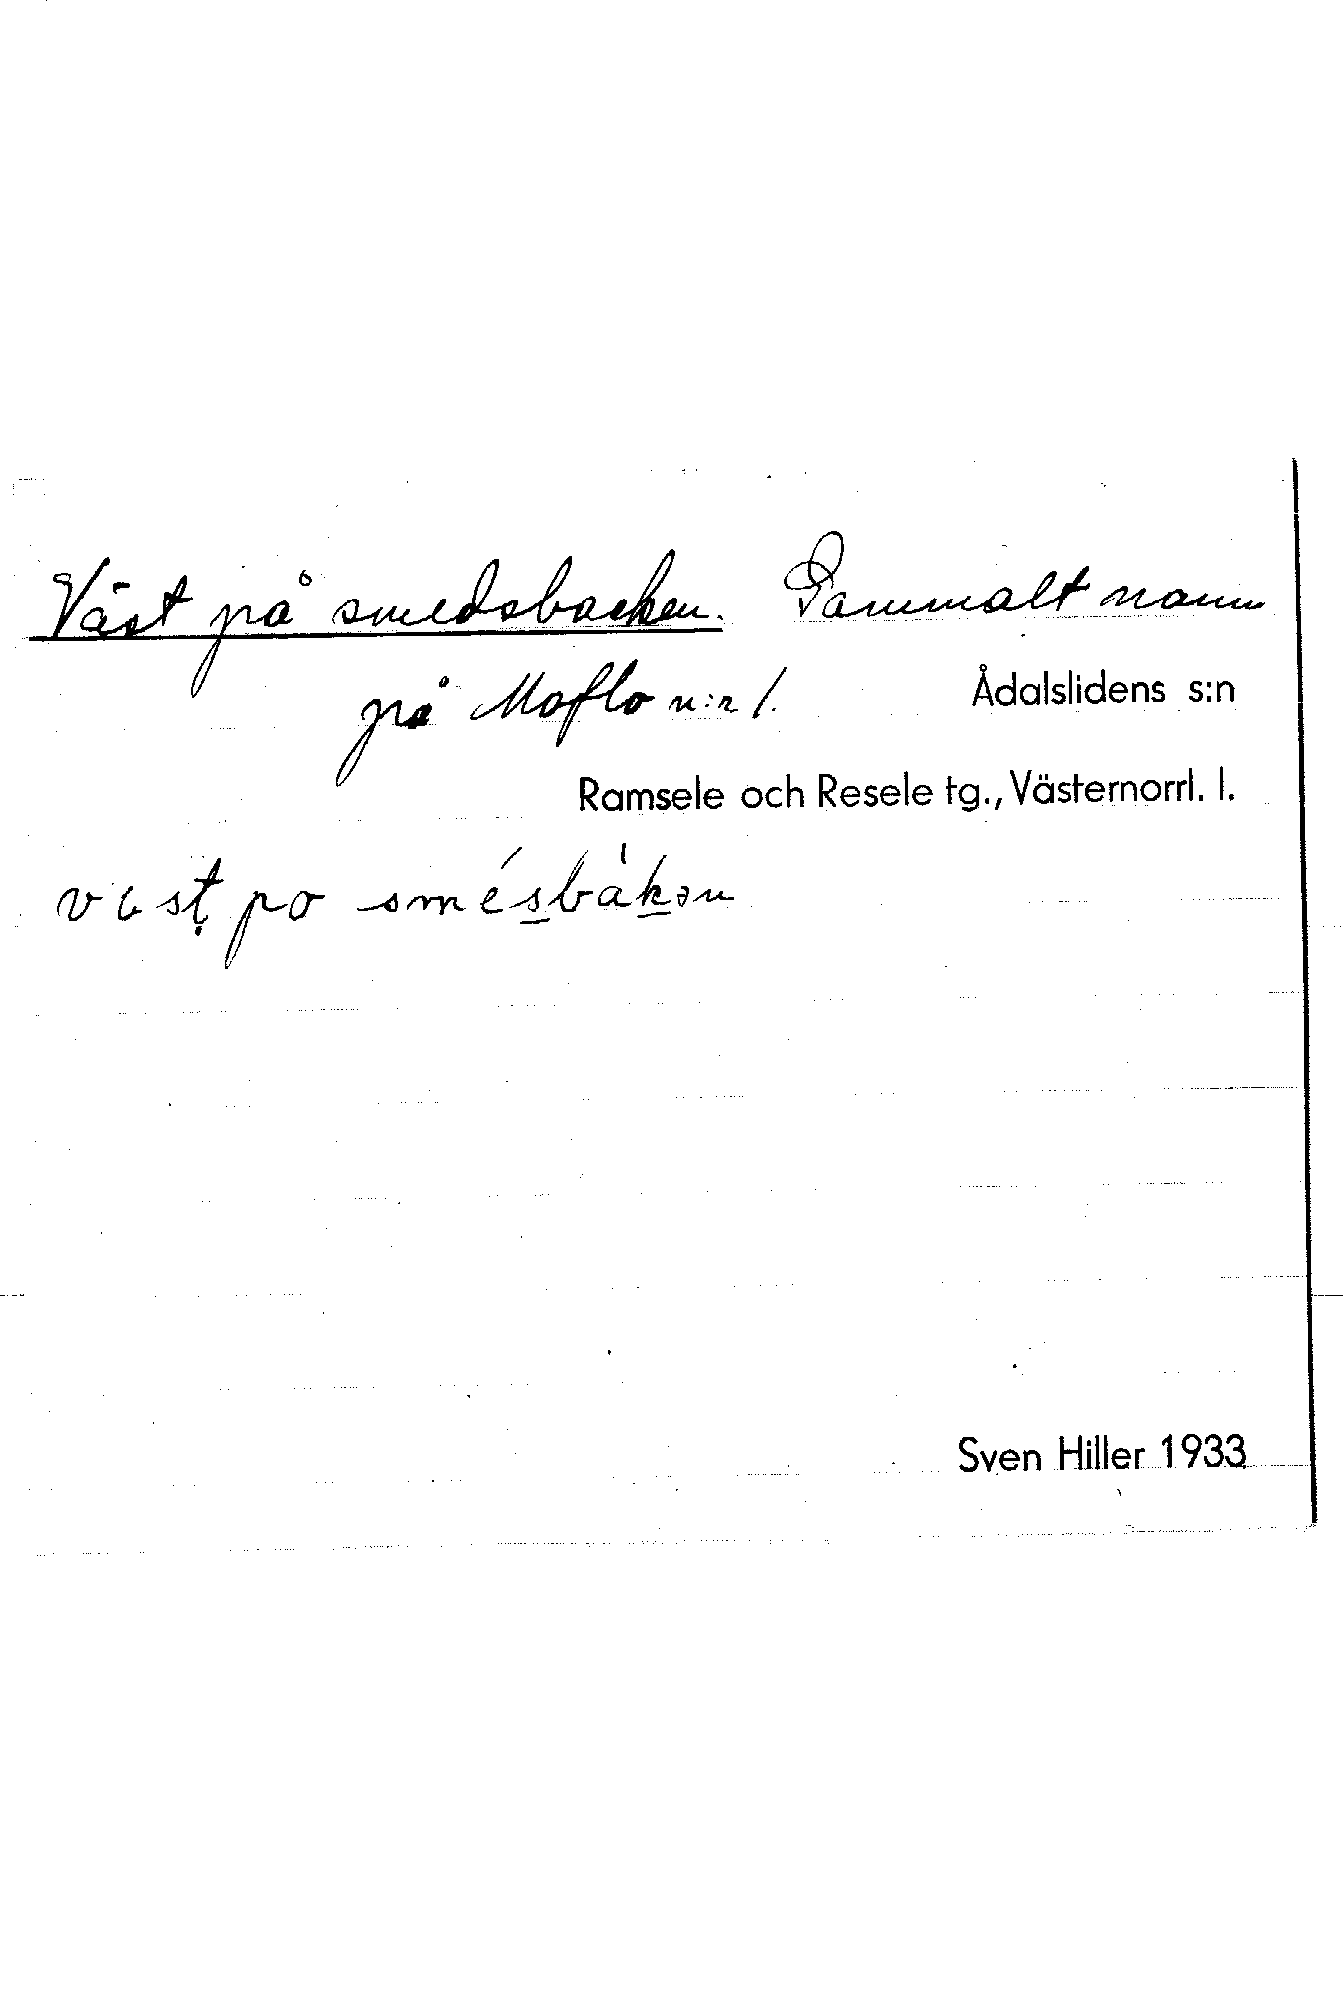 Väst på smedsbacken. Gammalt namn
på Moflo n:r 1.
Ådalslidens s:n
Ramsele och Resele tg., Västernorrl. l.
po smésbàkən
Sven Hiller 1933